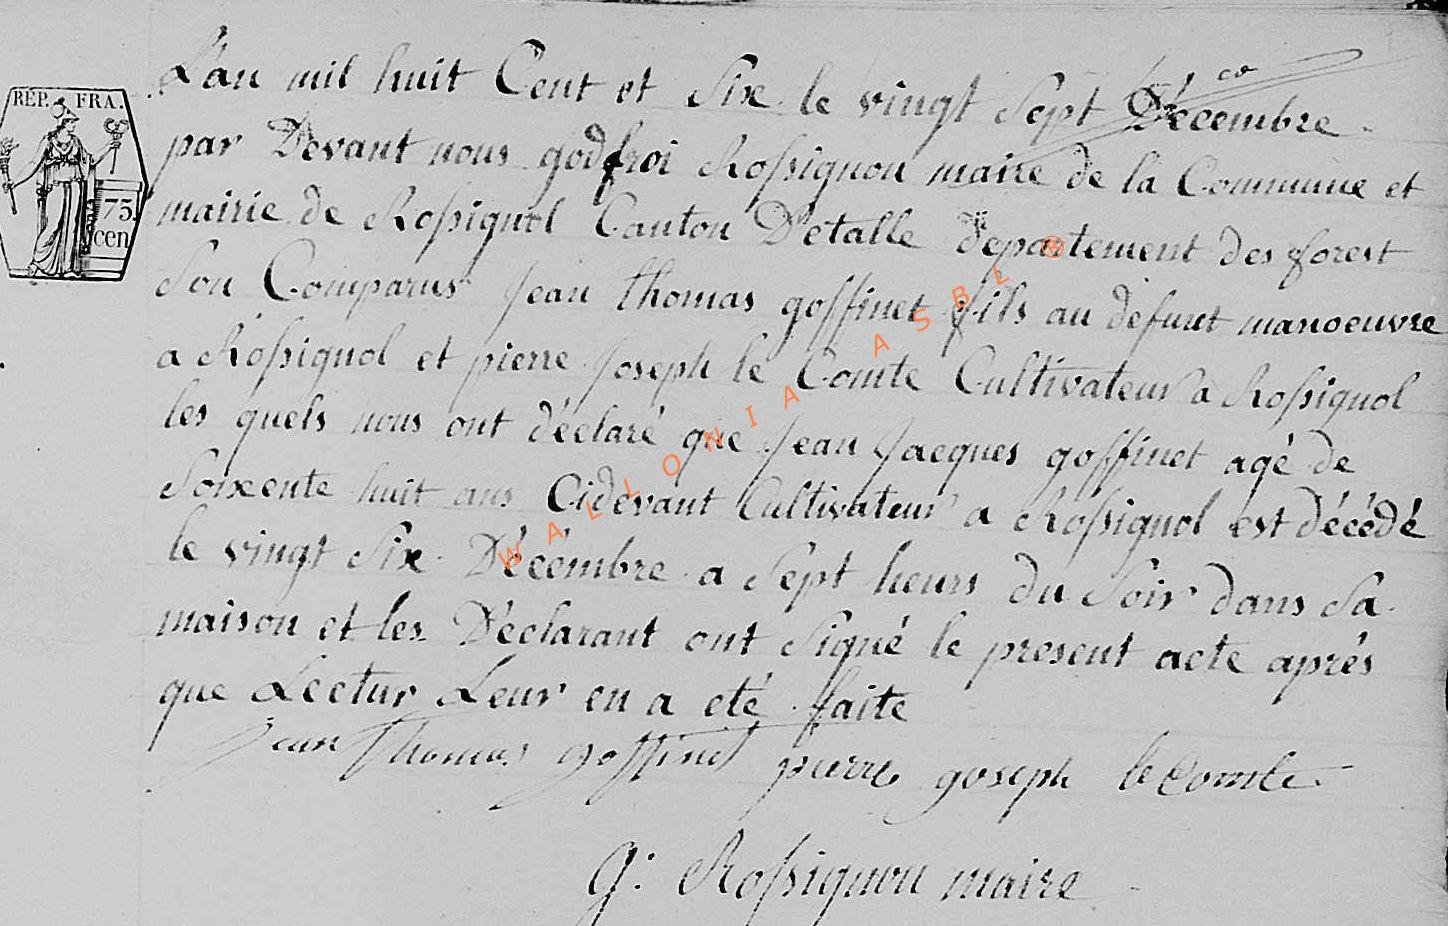 co
L'an mil huit Cent et Six le vingt Sept Décembre
par Devant nous godfroi Rossignon maire de la Commune et
RÉP. FRA.
75.
cen
mairie de Rossignol Canton D'etalle departement des forest
Son Comparus Jean thomas goffinet fils au défunt manoeuvre
a Rossignol et pierre Joseph le Comte Cultivateur a Rossignol
les quels nous ont déclaré que Jean Jacques goffinet agé de
Soixente huit ans Cidevant Cultivateur a Rossignol est décédé
le vingt Six Décembre a Sept heurs du Soir dans Sa
maison et les Déclarant ont Signé le present acte aprés
que Lectur Leur en a eté faite
Jean Thomas goffinet pierre goseph le Comte
g: Rossignon maire
WALLONIA ASBL ®